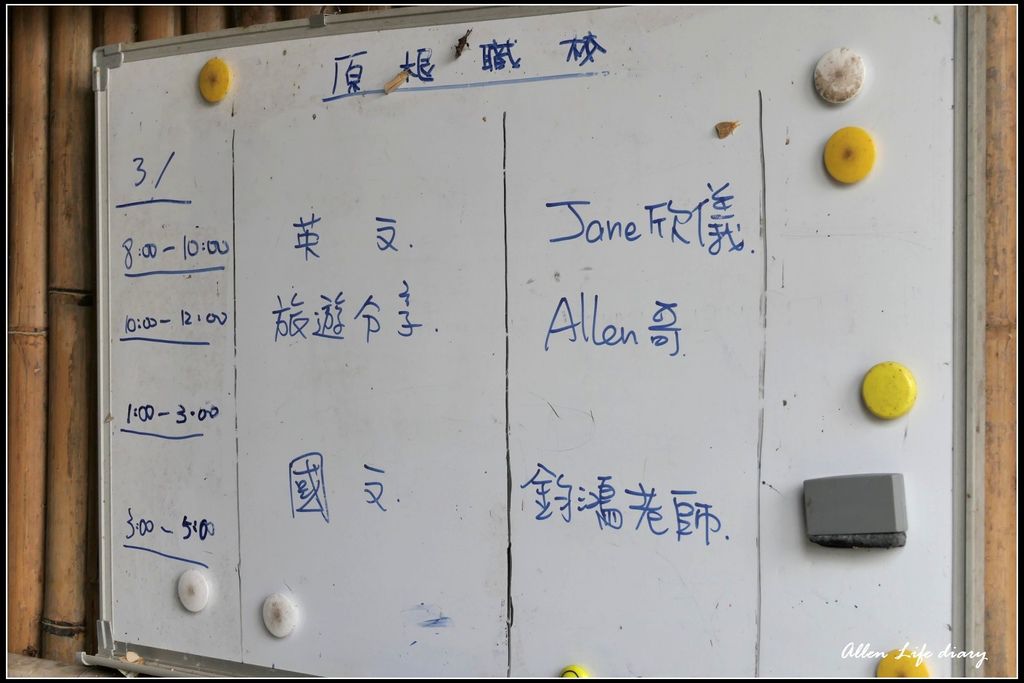 原 根 職 校
3/
8:00-10:00 英 文. Jane欣儀.
10:00-12:00 旅遊分享. Allen哥
1:00-3:00
3:00-5:00 國 文. 老師.
Allen Life diary